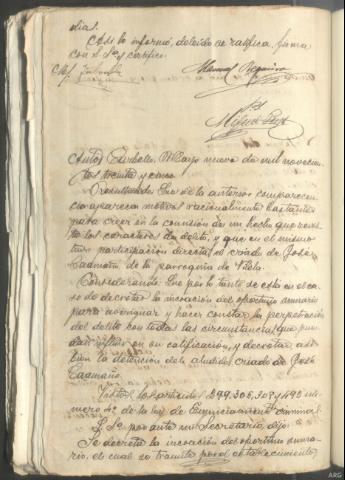 dias.
Así lo informó, leido se ratifica, firma
con S. Sª y certifico.
Manuel
Auto) Carballo, Mayo nueve de mil novecien-
tos treinta y cinco.
Resultando: Que de la anterior comparecen-
cia aparecen motivos racionalmente bastantes
para creer en la comisión de un hecho que revis-
ta los caracteres de delito, y que en el mismo
tuvo participación directa, el criado de José
Caamaño, de la parroquia de
Considerando: Que por lo tanto se está en el ca-
so de decretar la incoación del oportuno sumario
para averiguar y hacer constar la perpetración
del delito con todas las circunstancias que pue-
dan influir en su calificación, y decretar así
bien la detención del aludido criado de José
Caamaño.
Vistos los artículos 299, 306, 308 y 492 nú-
mero 4º de la ley de Enjuiciamiento criminal
S. Sª por ante mi Secretario, dijo:
Se decreta la incoación del oportuno suma-
rio, el cual se tramite por el
ARG